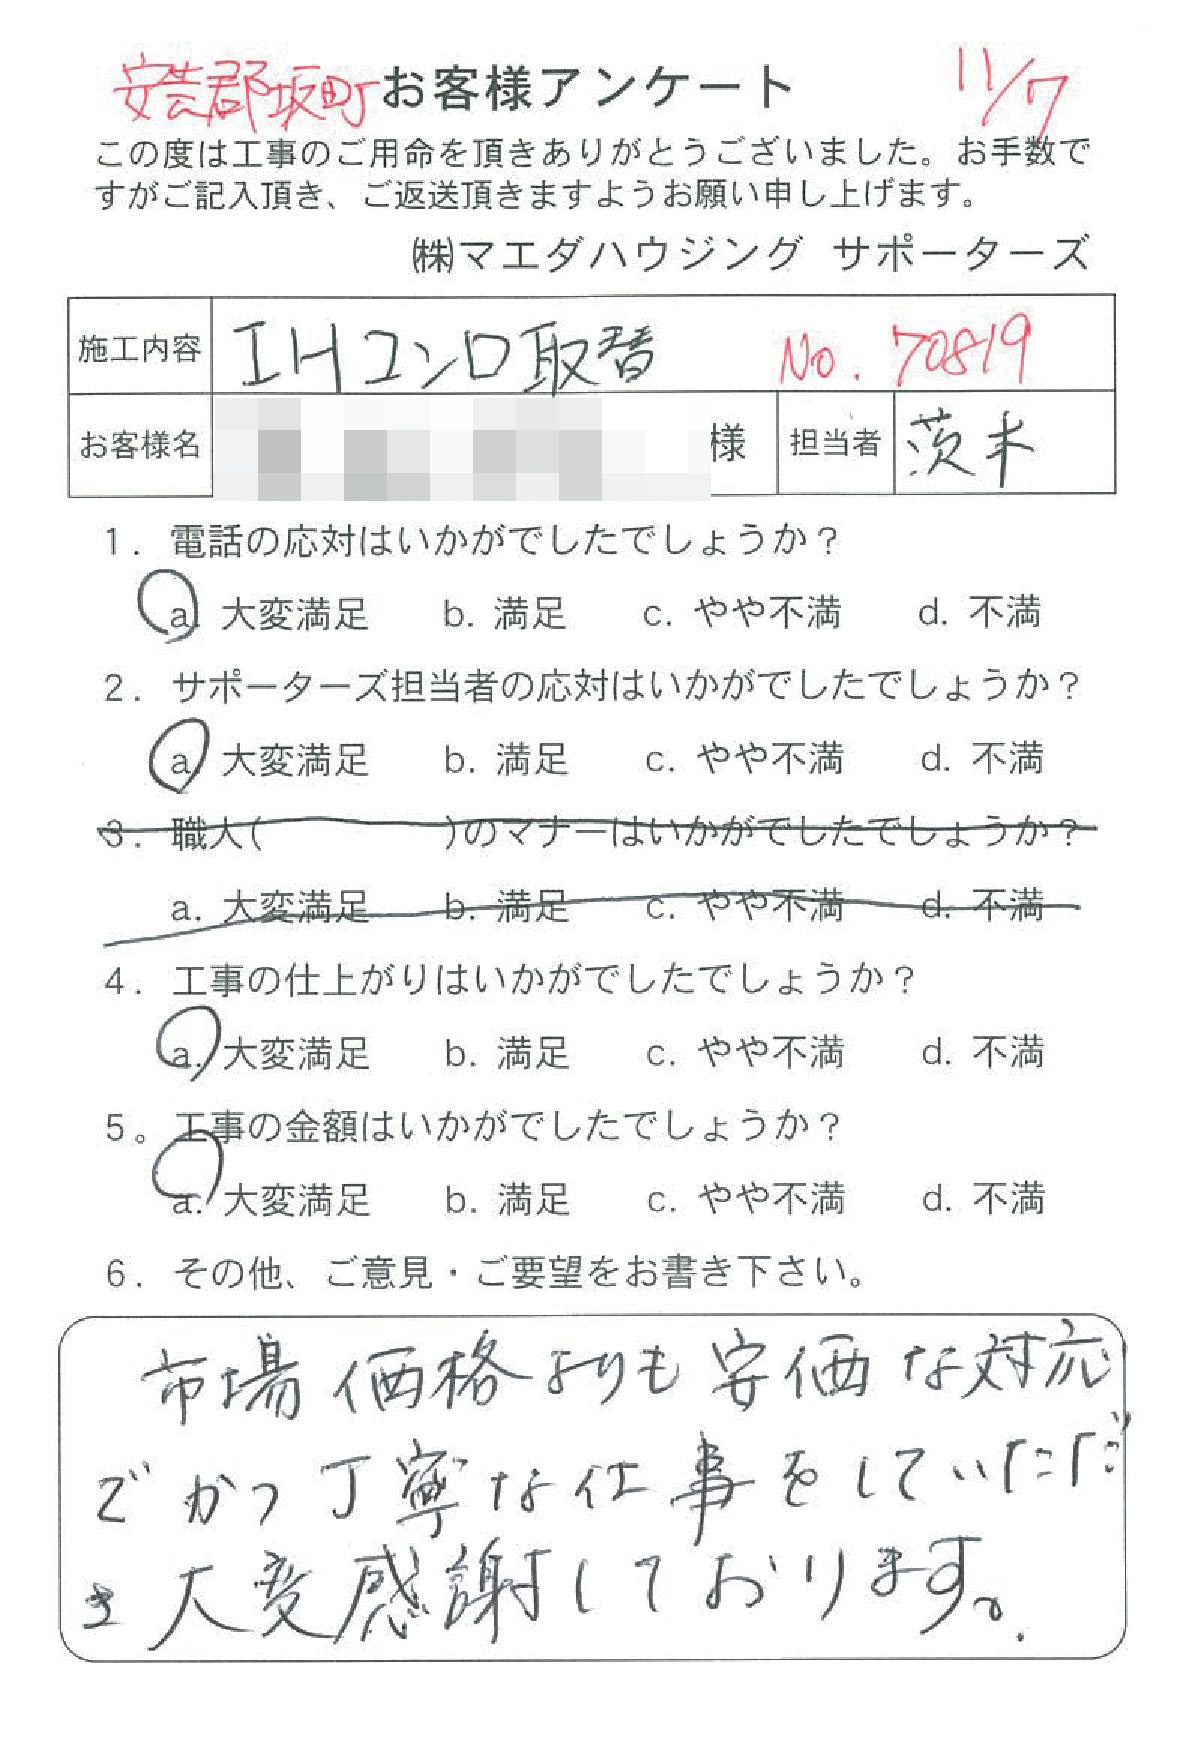 安芸郡坂町 お客様アンケート 11/7
この度は工事のご用命を頂きありがとうございました。お手数で
すがご記入頂き、ご返送頂きますようお願い申し上げます。
㈱マエダハウジング サポーターズ
施工内容 IHコンロ取替 No. 70819
お客様名 様 担当者 茨木
1. 電話の応対はいかがでしたでしょうか?
a. 大変満足 b. 満足 c. やや不満 d. 不満
2. サポーターズ担当者の応対はいかがでしたでしょうか?
a. 大変満足 b. 満足 c. やや不満 d. 不満
3. 職人( )のマナーはいかがでしたでしょうか?
a. 大変満足 b. 満足 c. やや不満 d. 不満
4. 工事の仕上がりはいかがでしたでしょうか?
a. 大変満足 b. 満足 c. やや不満 d. 不満
5。工事の金額はいかがでしたでしょうか?
a. 大変満足 b. 満足 c. やや不満 d. 不満
6. その他、ご意見・ご要望をお書き下さい。
市場価格よりも安価な対応
でかつ丁寧な仕事をしていただ
き大変感謝しております。